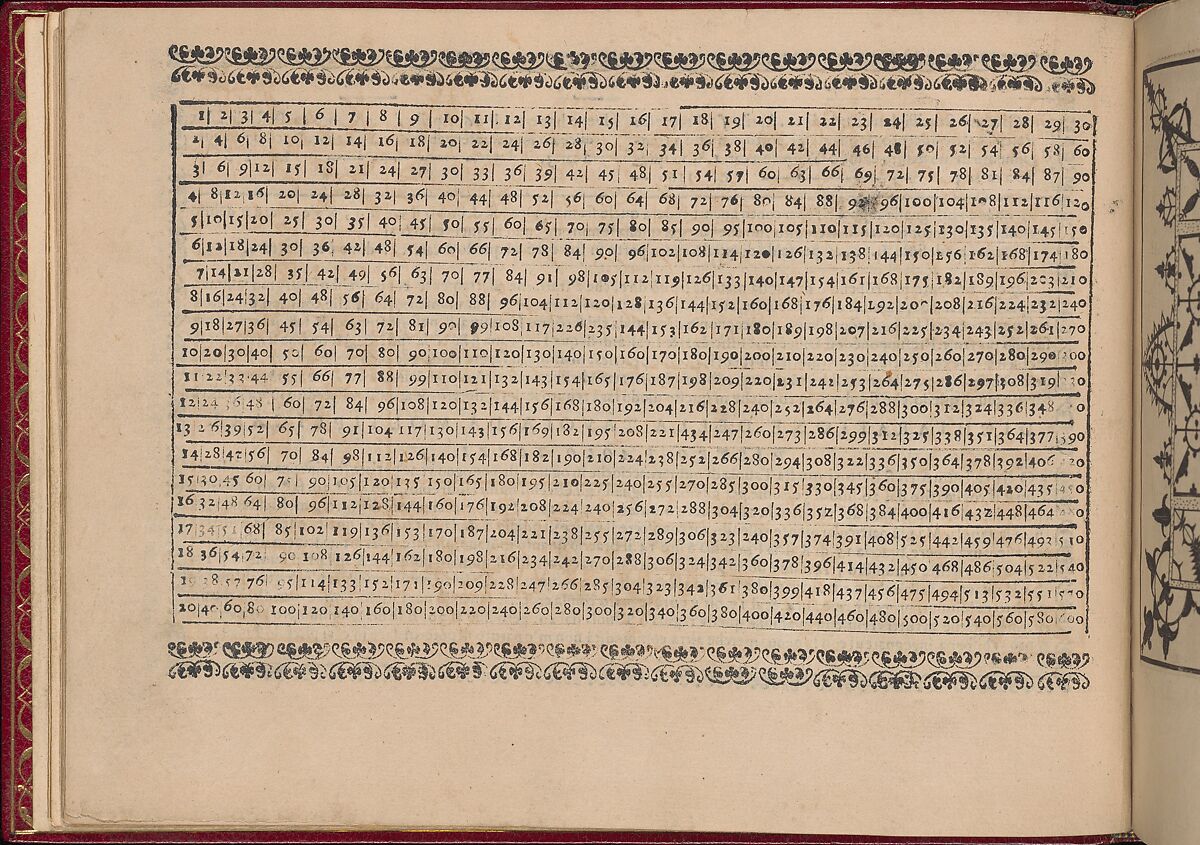 1| 2| 3| 4| 5| 6| 7| 8| 9| 10| 11| 12| 13| 14| 15| 16| 17| 18| 19| 20| 21| 22| 23| 24| 25| 26| 27| 28| 29| 30
2| 4| 6| 8| 10| 12| 14| 16| 18| 20| 22| 24| 26| 28| 30| 32| 34| 36| 38| 40| 42| 44| 46| 48| 50| 52| 54| 56| 58| 60
3| 6| 9|12| 15| 18| 21| 24| 27| 30| 33| 36| 39| 42| 45| 48| 51| 54| 57| 60| 63| 66| 69| 72| 75| 78| 81| 84| 87| 90
4| 8|12|16| 20| 24| 28| 32| 36| 40| 44| 48| 52| 56| 60| 64| 68| 72| 76| 80| 84| 88| 92| 96|100|104|108|112|116|120
5|10|15|20| 25| 30| 35| 40| 45| 50| 55| 60| 65| 70| 75| 80| 85| 90| 95|100|105|110|115|120|125|130|135|140|145|150
6|12|18|24| 30| 36| 42| 48| 54| 60| 66| 72| 78| 84| 90| 96|102|108|114|120|126|132|138|144|150|156|162|168|174|180
7|14|21|28| 35| 42| 49| 56| 63| 70| 77| 84| 91| 98|105|112|119|126|133|140|147|154|161|168|175|182|189|196|203|210
8|16|24|32| 40| 48| 56| 64| 72| 80| 88| 96|104|112|120|128|136|144|152|160|168|176|184|192|200|208|216|224|232|240
9|18|27|36| 45| 54| 63| 72| 81| 90| 99|108|117|226|235|144|153|162|171|180|189|198|207|216|225|234|243|252|261|270
10|20|30|40| 50| 60| 70| 80| 90|100|110|120|130|140|150|160|170|180|190|200|210|220|230|240|250|260|270|280|290|300
11|22|33|44 55| 66| 77| 88| 99|110|121|132|143|154|165|176|187|198|209|220|231|242|253|264|275|286|297|308|319|
12|24|36|48| 60| 72| 84| 96|108|120|132|144|156|168|180|192|204|216|228|240|252|264|276|288|300|312|324|336|348
13|26|39|52| 65| 78| 91|104|117|130|143|156|169|182|195|208|221|434|247|260|273|286|299|312|325|338|351|364|377|390
14|28|42|56| 70| 84| 98|112|126|140|154|168|182|190|210|224|238|252|266|280|294|308|322|336|350|364|378|392|406
15|30|45|60| 90|105|120|135|150|165|180|195|210|225|240|255|270|285|300|315|330|345|360|375|390|405|420|435
16|32|48|64| 80| 96|112|128|144|160|176|192|208|224|240|256|272|288|304|320|336|352|368|384|400|416|432|448|464
17|34|51|68| 85|102|119|136|153|170|187|204|221|238|255|272|289|306|323|240|357|374|391|408|525|442|459|476|493|510
18|36|54|72 90|108|126|144|162|180|198|216|234|242|270|288|306|324|342|360|378|396|414|432|450|468|486|504|522|540
38|57|76| 95|114|133|152|171|190|209|228|247|266|285|304|323|342|361|380|399|418|437|456|475|494|513|532|551|570
20|40|60|80|100|120|140|160|180|200|220|240|260|280|300|320|340|360|380|400|420|440|460|480|500|520|540|560|580|600